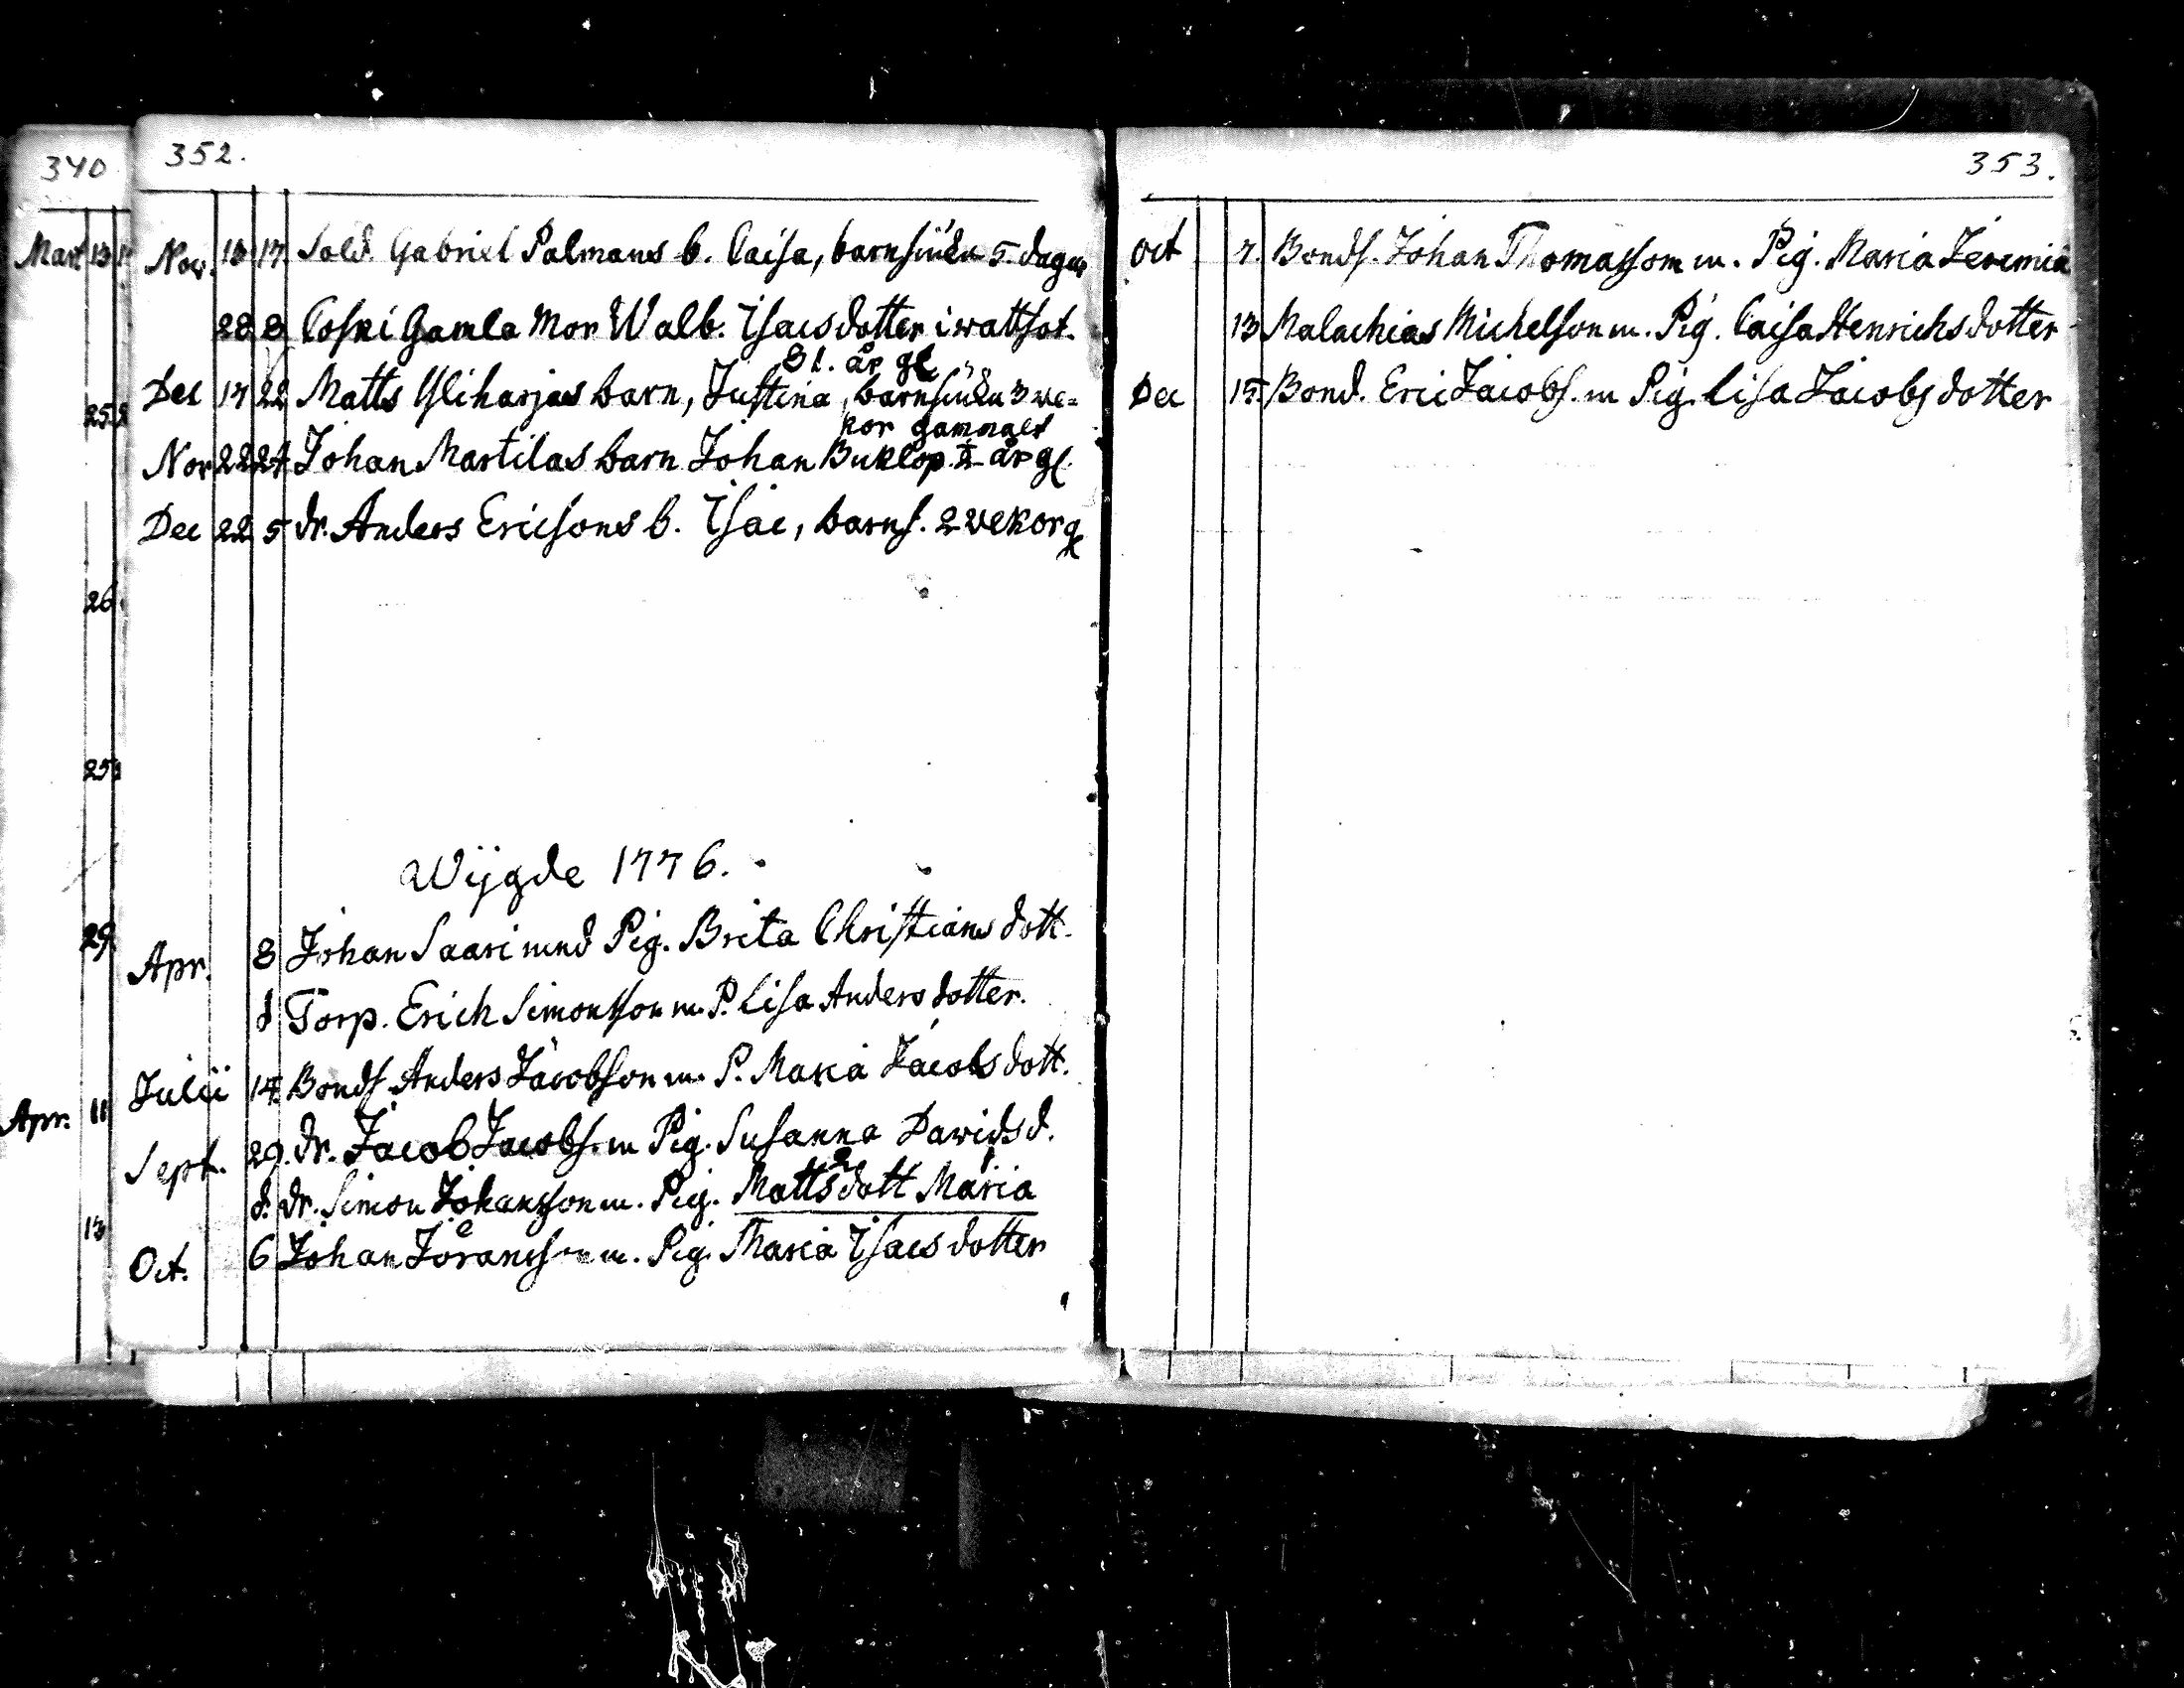 340
Mart 13
25
26
25
29
Apr. 11
13
352.
Nov. 13 17. Sold. Gabriel Palmans b. Caisa, barnsiukn 5. dagar
28 8 Coski Gamla Mor Walb. Isacsdotter i wattsot.
81. år gl
Dec 17 22 Matts Yliharjas barn, Justina, barnsiukn 3 we=
kor gammalt
Nov 22 24 Johan Martilas barn Johan Buklop. ½ år gl.
Dec 22 5 dr. Anders Ericsons b. Isac, barns. 2 wekor gl
Wijgde 1776.
Apr. 8 Johan Saari med Pig. Brita Christians dott.
d Torp. Erich Simonsson m. P. Lisa Anders dotter.
Julii 14. Bonds. Anders Jacobson m. P. Maria Jacobs dott.
Sept. 29. dr. Jacob Jacobs. m Pig. Susanna Dawidsd.
2 1
d. dr. Simon Johansson m. Pig. Mattsdott Maria
Oct. 6 Johan Jöransson m. Pig. Maria Isacs dotter
353.
Oct 7. Bonds. Johan Thomasson m. Pig. Maria Jeremiæ
13 Malachias Michelson m. Pig. Caisa Henrichs dotter
Dec 15. Bond. Eric Jacobs. m Pig. Lisa Jacobs dotter